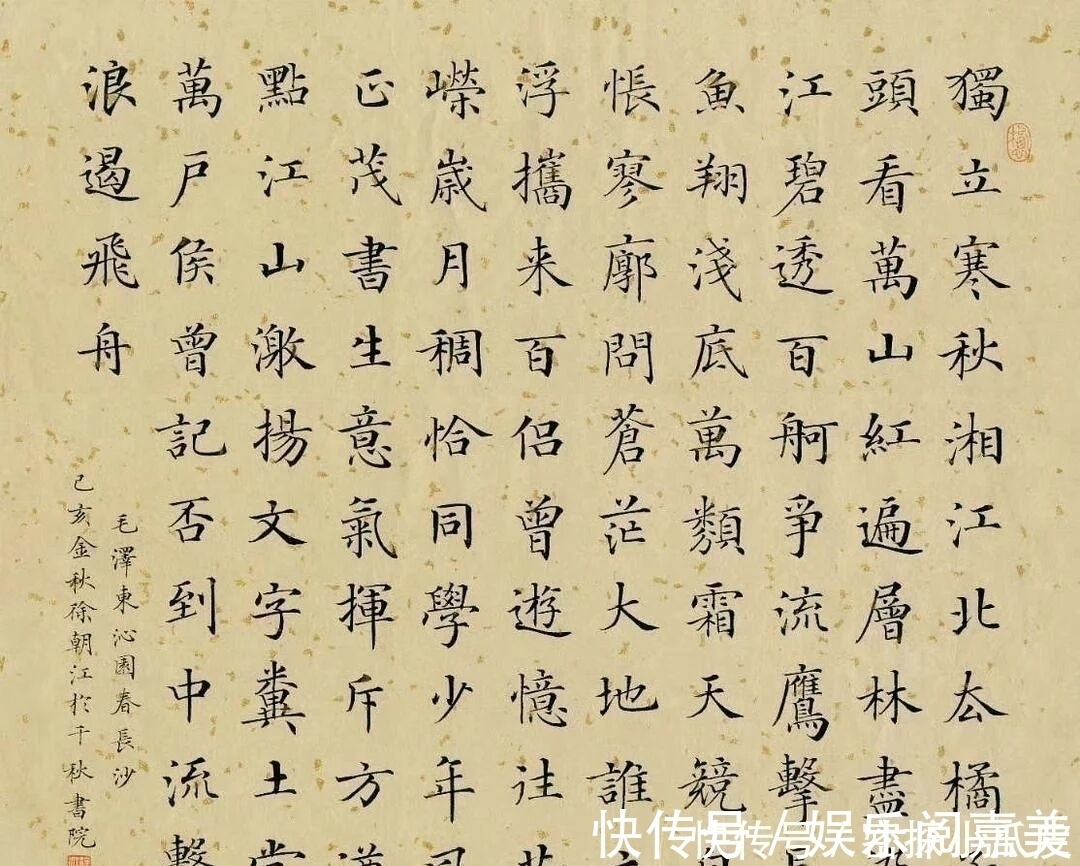 獨立寒秋湘江北厺橘
頭看萬山紅遍層林盡
江碧透百舸爭流鷹擊
魚翔淺底萬類霜天競
悵寥廓問蒼茫大地誰
浮攜来百侶曾遊憶往
嶸歲月稠恰同學少年
正茂書生意氣揮斥方
點江山激揚文字糞土當
萬戶侯曾記否到中流擊
浪遏飛舟
毛澤東沁園春長沙
己亥金秋徐朝江於千秋書院
快传号